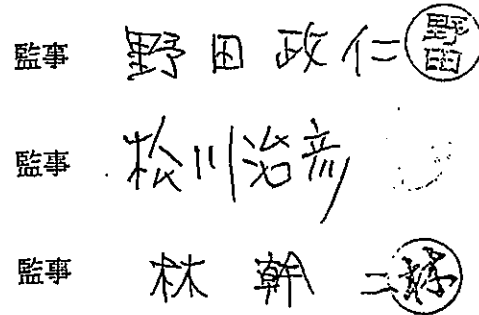 監事 野田政仁 野田
監事 松川治彦
監事 林幹二 林